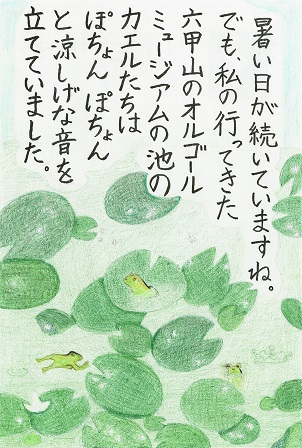 暑い日が続いていますね。
でも、私の行ってきた
六甲山のオルゴール
ミュージアムの池の
カエルたちは
ぽちょん ぽちょん
と涼しげな音を
立てていました。